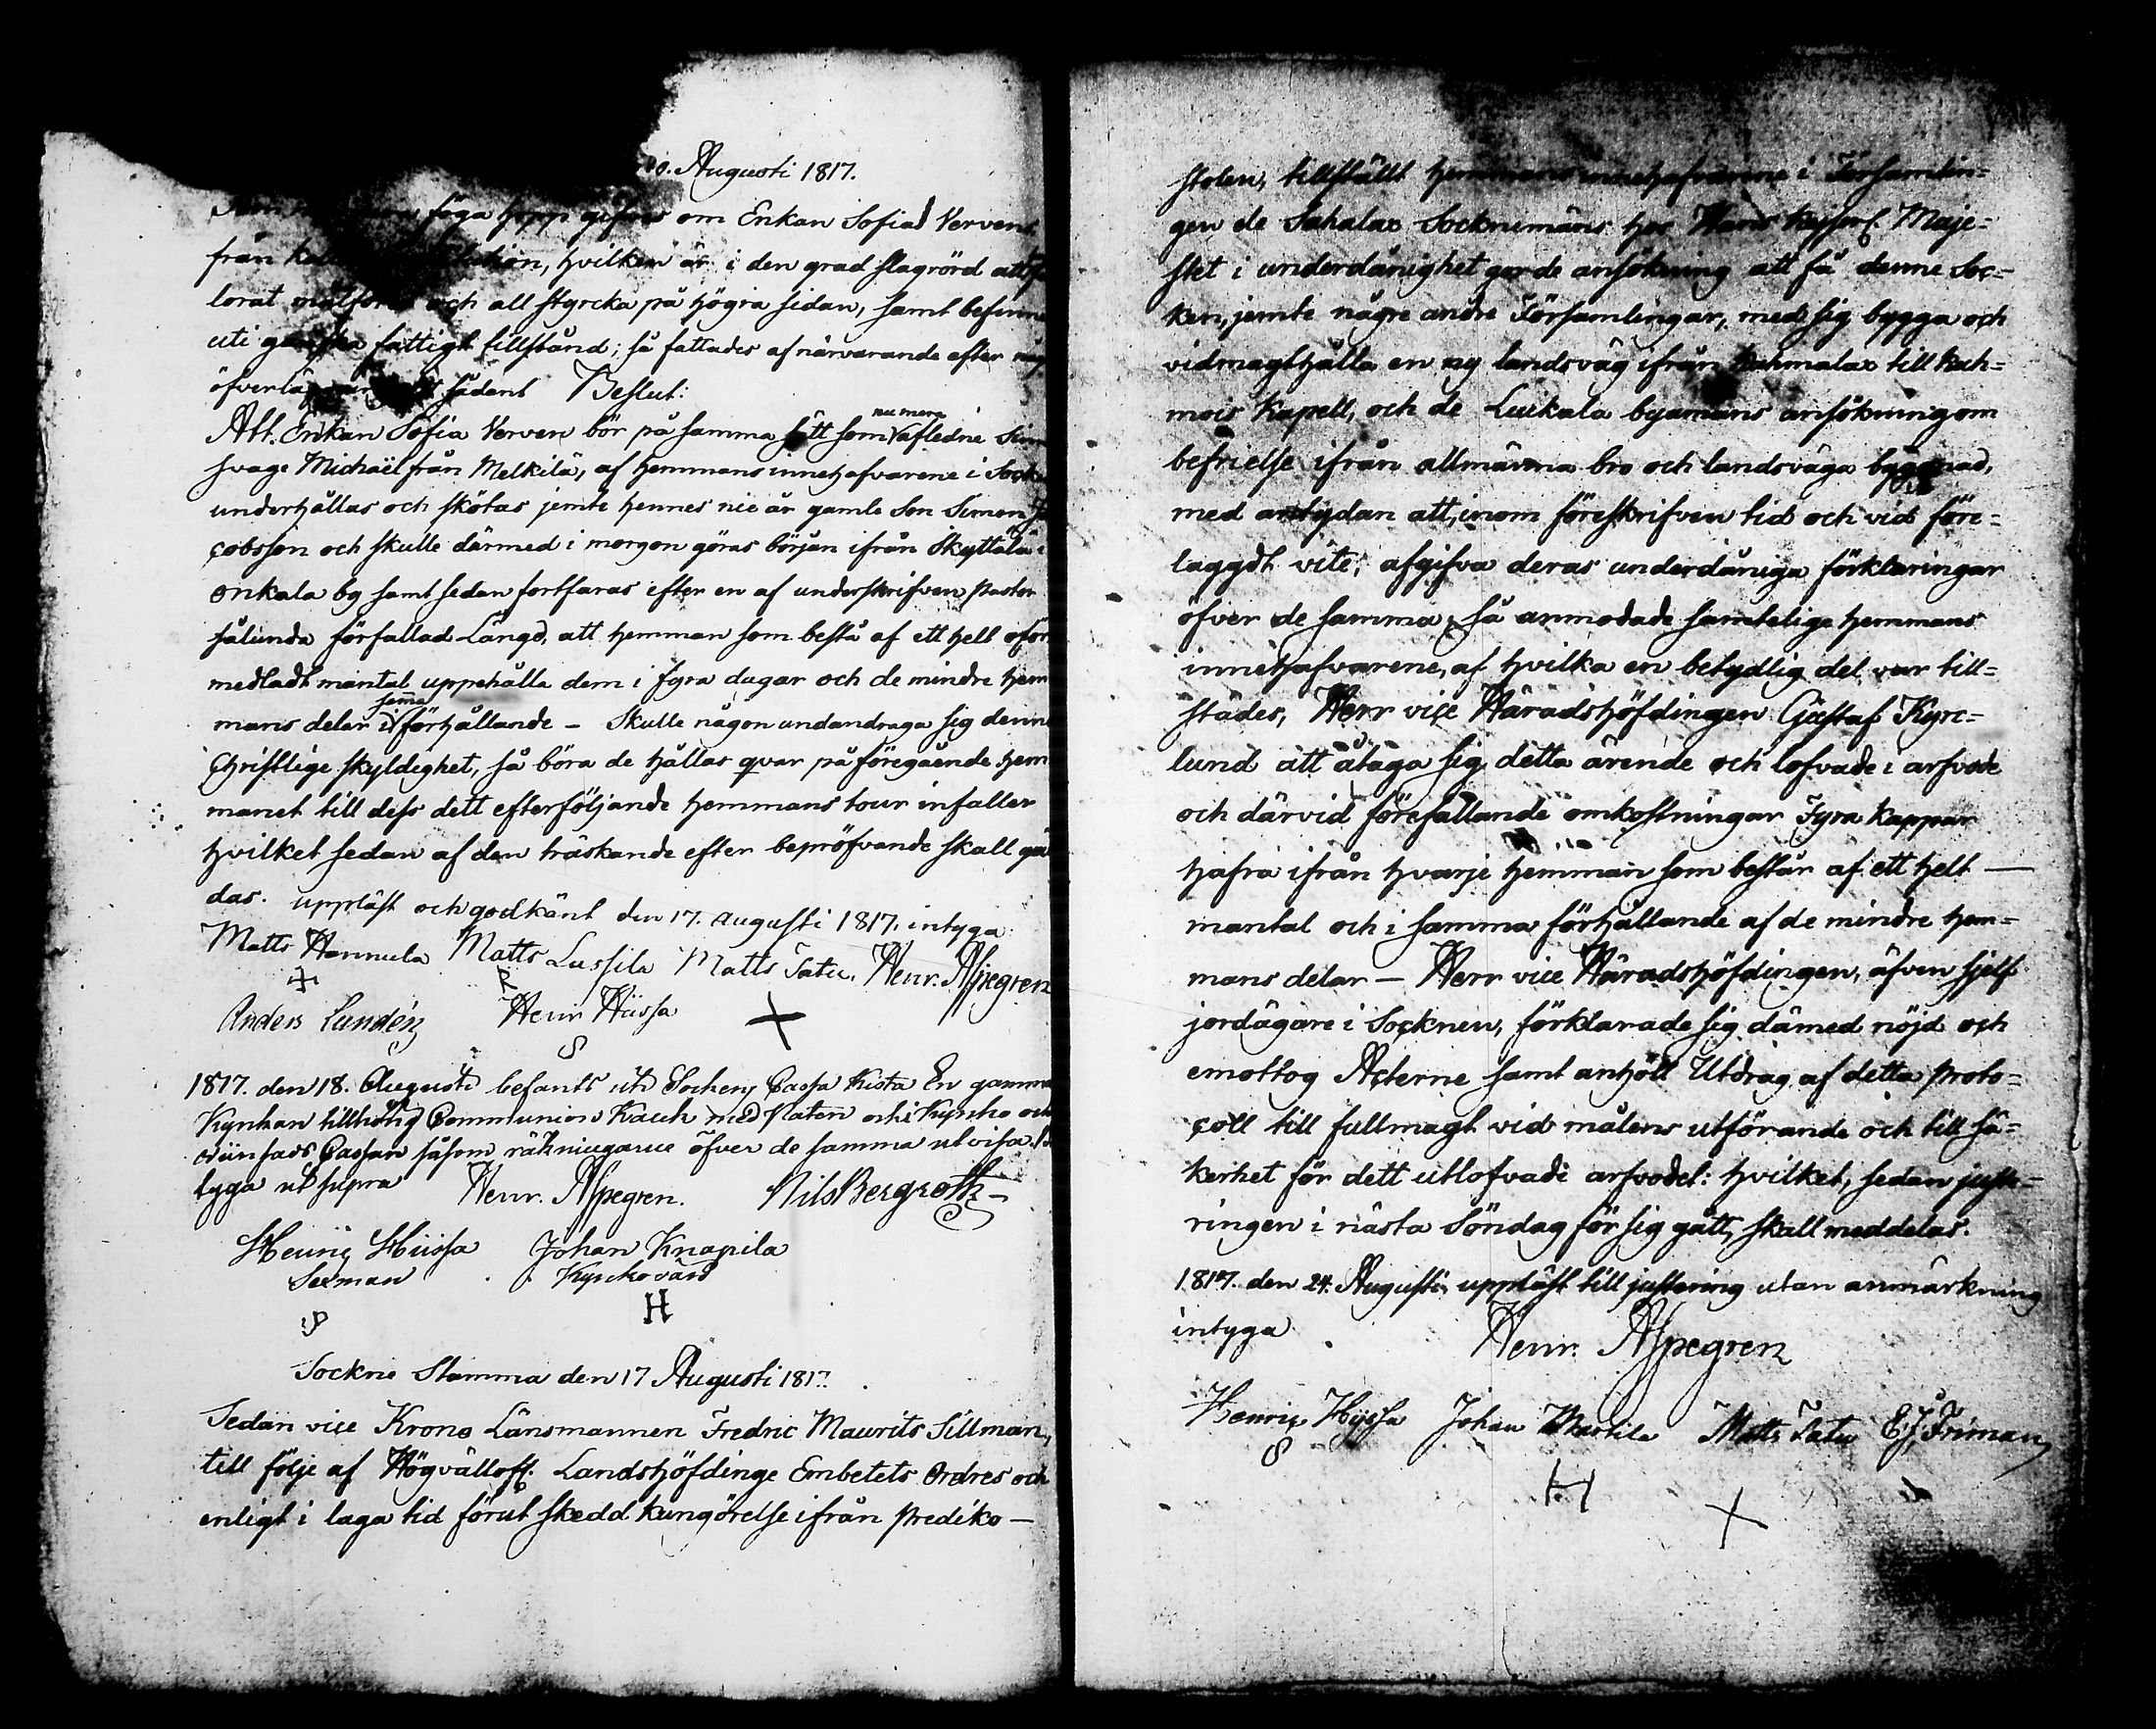 10. Augusti 1817.
föga hopp gifves om Enkan Sofia Verven
från hvilken är i den grad slagrörd att
lorat målföre och all styrcka på högra sidan, samt befinne
uti ganska fattigt tillstånd; så fattades af närvarande efter
öfverläg sådant Beslut:
Att. Enkan Sofia Verven bör på samma sätt som nu mera afledne Sinn
svage Michaël från Melkilä, af hemmans innehafvarene i Sock
underhållas och skötas jemte hennes nie år gamle Son Simon Ja
cobsson och skulle därmed i morgon göras början ifrån Skyttälä i
Onkala by samt sedan fortfaras efter en af underskrifven Pastor
sålunda författad Längd, att hemman som bestå af ett helt oför
medladt mantal uppehålla dem i fyra dagar och de mindre hem
mans delar i samma förhållande – Skulle någon undandraga sig denne
Christlige skyldighet, så böra de hållas qvar på föregående hem
manet till dess dett efterföljande hemmans tour infaller
hvilket sedan af den träskande efter bepröfvande skall
das. uppläst och godkänt den 17. augusti 1817. intyga.
Matts Hannula Matts Lassila Matts Tatu. Henr. Aspegren
Anders Lundén Henr Hiissa
1817. den 18. Augusti befants uti Sockens Cassa Kista En gammal
Kyrkan tillhörig Communion Kalk med Paten och i Kyrko och
Cassan såsom räkningarne öfver de samma utvisa.
tyga ut supra Henr. Aspegren. Nils Bergroth
Henric Hiissa Johan Knapila
Sexman Kyrkovärd
H
Sockne Stämma den 17 Augusti 1817.
Sedan vice Krono Länsmannen Fredric Maurits Sillman,
till följe af Högvällofl. Landshöfdinge Embetets Ordres och
enligt i laga tid förut skedd kungörelse ifrån Prediko–
stolen, tillställt hemmans innehafvarene i Församlin=
gen de Sahalax Socknemäns hos Hans Kejserl. Maje=
stet i underdånighet gorde ansökning att få denne Soc=
ken, jemte någre andre Församlingar, med sig bygga och
vidmagthålla en ny landsväg ifrån Kahmalax till Kuh=
mois Kapell, och de Luikala byamäns ansökning om
befrielse ifrån allmänna bro och landsväga byggnad,
med antydan att, inom föreskrifven tid och vid före=
laggdt vite, afgifva deras underdåniga förklaringar
öfver de samma, så anmodade samtelige hemmans
innehafvarene, af hvilka en betydlig del var till=
städes, Herr vice Häradshöfdingen Gustaf Kyre=
lund att åtaga sig detta ärende och lofvade i arfvode
och därvid förefallande omkostningar Fyra kappar
hafra ifrån hvarje hemman som består af ett helt —
mantal och i samma förhållande af de mindre hem=
mans delar – Herr vice Häradshöfdingen, äfven sjelf
jordägare i Socknen, förklarade sig dämed nöjd och
emottog Acterne samt anhöll Utdrag af detta Proto=
coll till fullmagt vid målens utförande och till sä=
kerhet för dett utlofvade arfvodet: hvilket, sedan juste=
ringen i nästa Söndag för sig gått, skall meddelas.
1817. den 24. Augusti, uppläst till justering utan anmärkning
intyga Henr. Aspegren
Henric Hyssa Johan Marttila Matts Tatu E J Friman
H